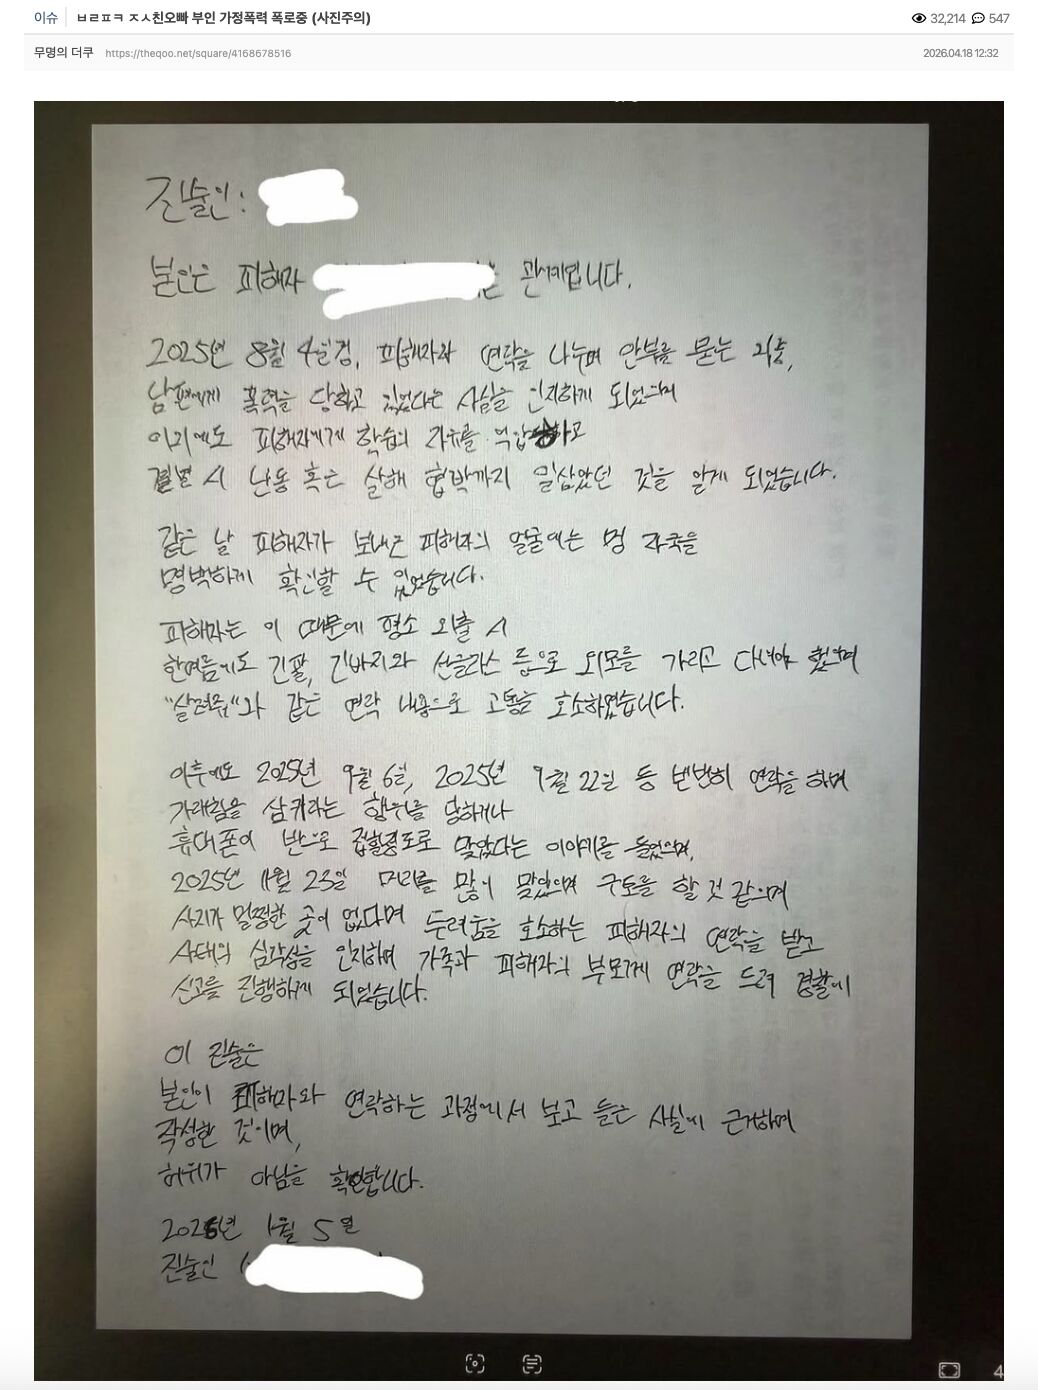 이슈 ㅂㄹㅍㅋ ㅈㅅ친오빠 부인 가정폭력 폭로중 (사진주의) 32,214 547
무명의 더쿠 https://theqoo.net/square/4168678516 2026.04.18 12:32
진술인 :
본인은 피해자 는 관계입니다.
2025년 8월 4일경, 피해자와 연락을 나누며 안부를 묻는 와중,
남편에게 폭력을 당하고 있었다는 사실을 인지하게 되었으며
이외에도 피해자에게 학습의 자유를 억압하고
결별 시 난동 혹은 살해 협박까지 일삼았던 것을 알게 되었습니다.
같은 날 피해자가 보내준 피해자의 얼굴에는 멍 자국을
명백하게 확인할 수 있었습니다.
피해자는 이 때문에 평소 외출 시
한여름에도 긴팔, 긴바지와 선글라스 등으로 외모를 가리고 다녀야 했으며
"살려줘"와 같은 연락 내용으로 고통을 호소하였습니다.
이후에도 2025년 9월 6일, 2025년 9월 22일 등 빈번히 연락을 하며
가래침을 삼키라는 행위를 당하거나
휴대폰이 반으로 접힐정도로 맞았다는 이야기를 들었으며,
2025년 11월 23일 머리를 많이 맞았으며 구토를 할 것 같으며
사지가 멀쩡한 곳이 없다며 두려움을 호소하는 피해자의 연락을 받고
사태의 심각성을 인지하며 가족과 피해자의 부모께 연락을 드려 경찰에
신고를 진행하게 되었습니다.
이 진술은
본인이 피해자와 연락하는 과정에서 보고 들은 사실에 근거하며
작성한 것이며,
허위가 아님을 확인합니다.
2026년 1월 5일
진술인 (
4